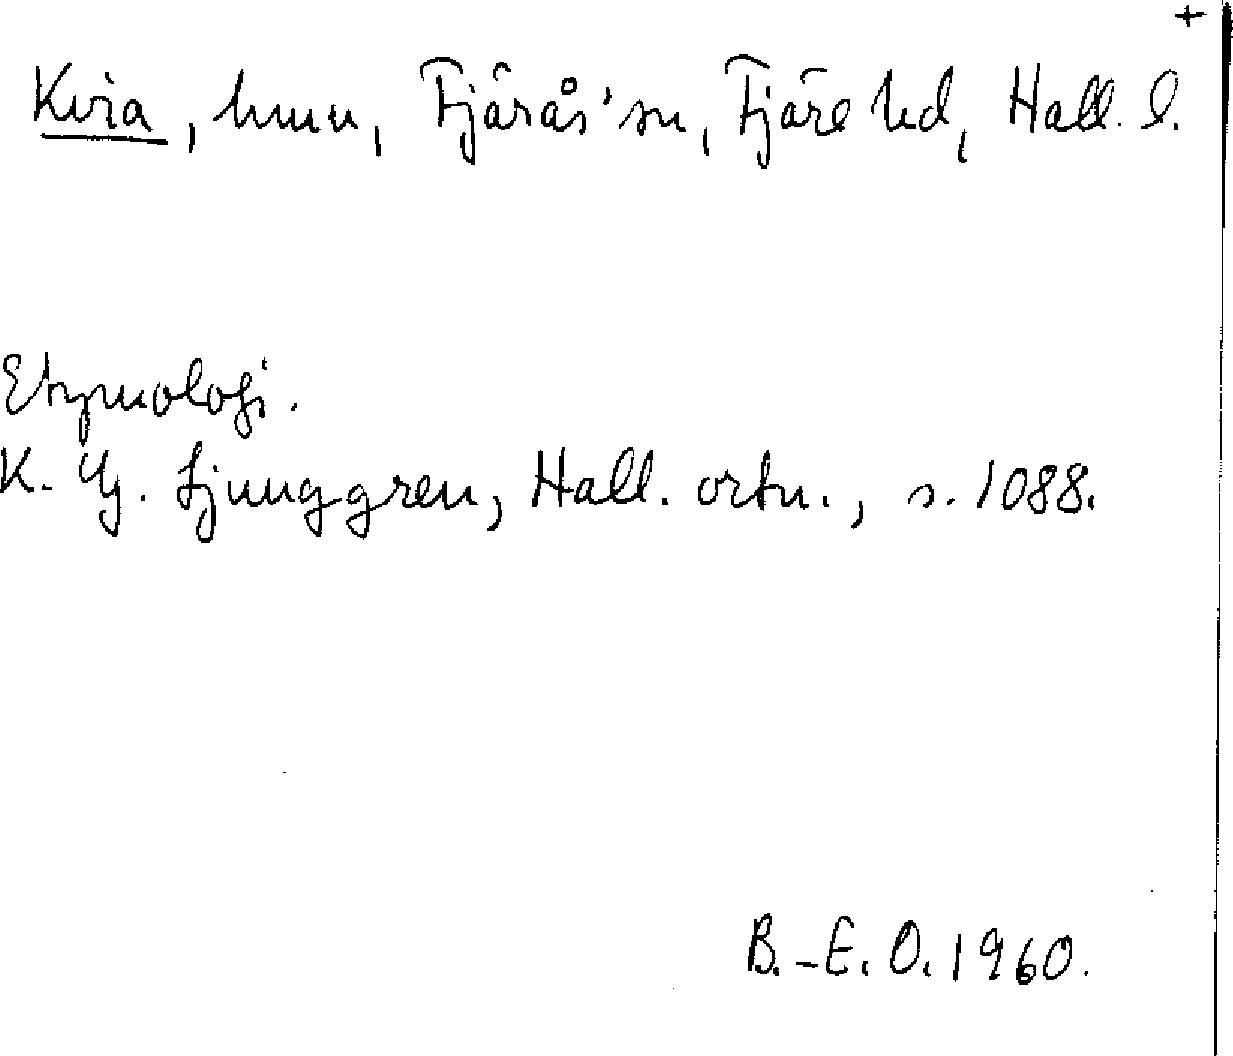 +
Kvia, hmn, Fjärås' sn, Fjäre hd, Hall. l.
Etymologi.
K. G. Ljunggren, Hall. ortn., s. 1088.
B.-E. O. 1960.